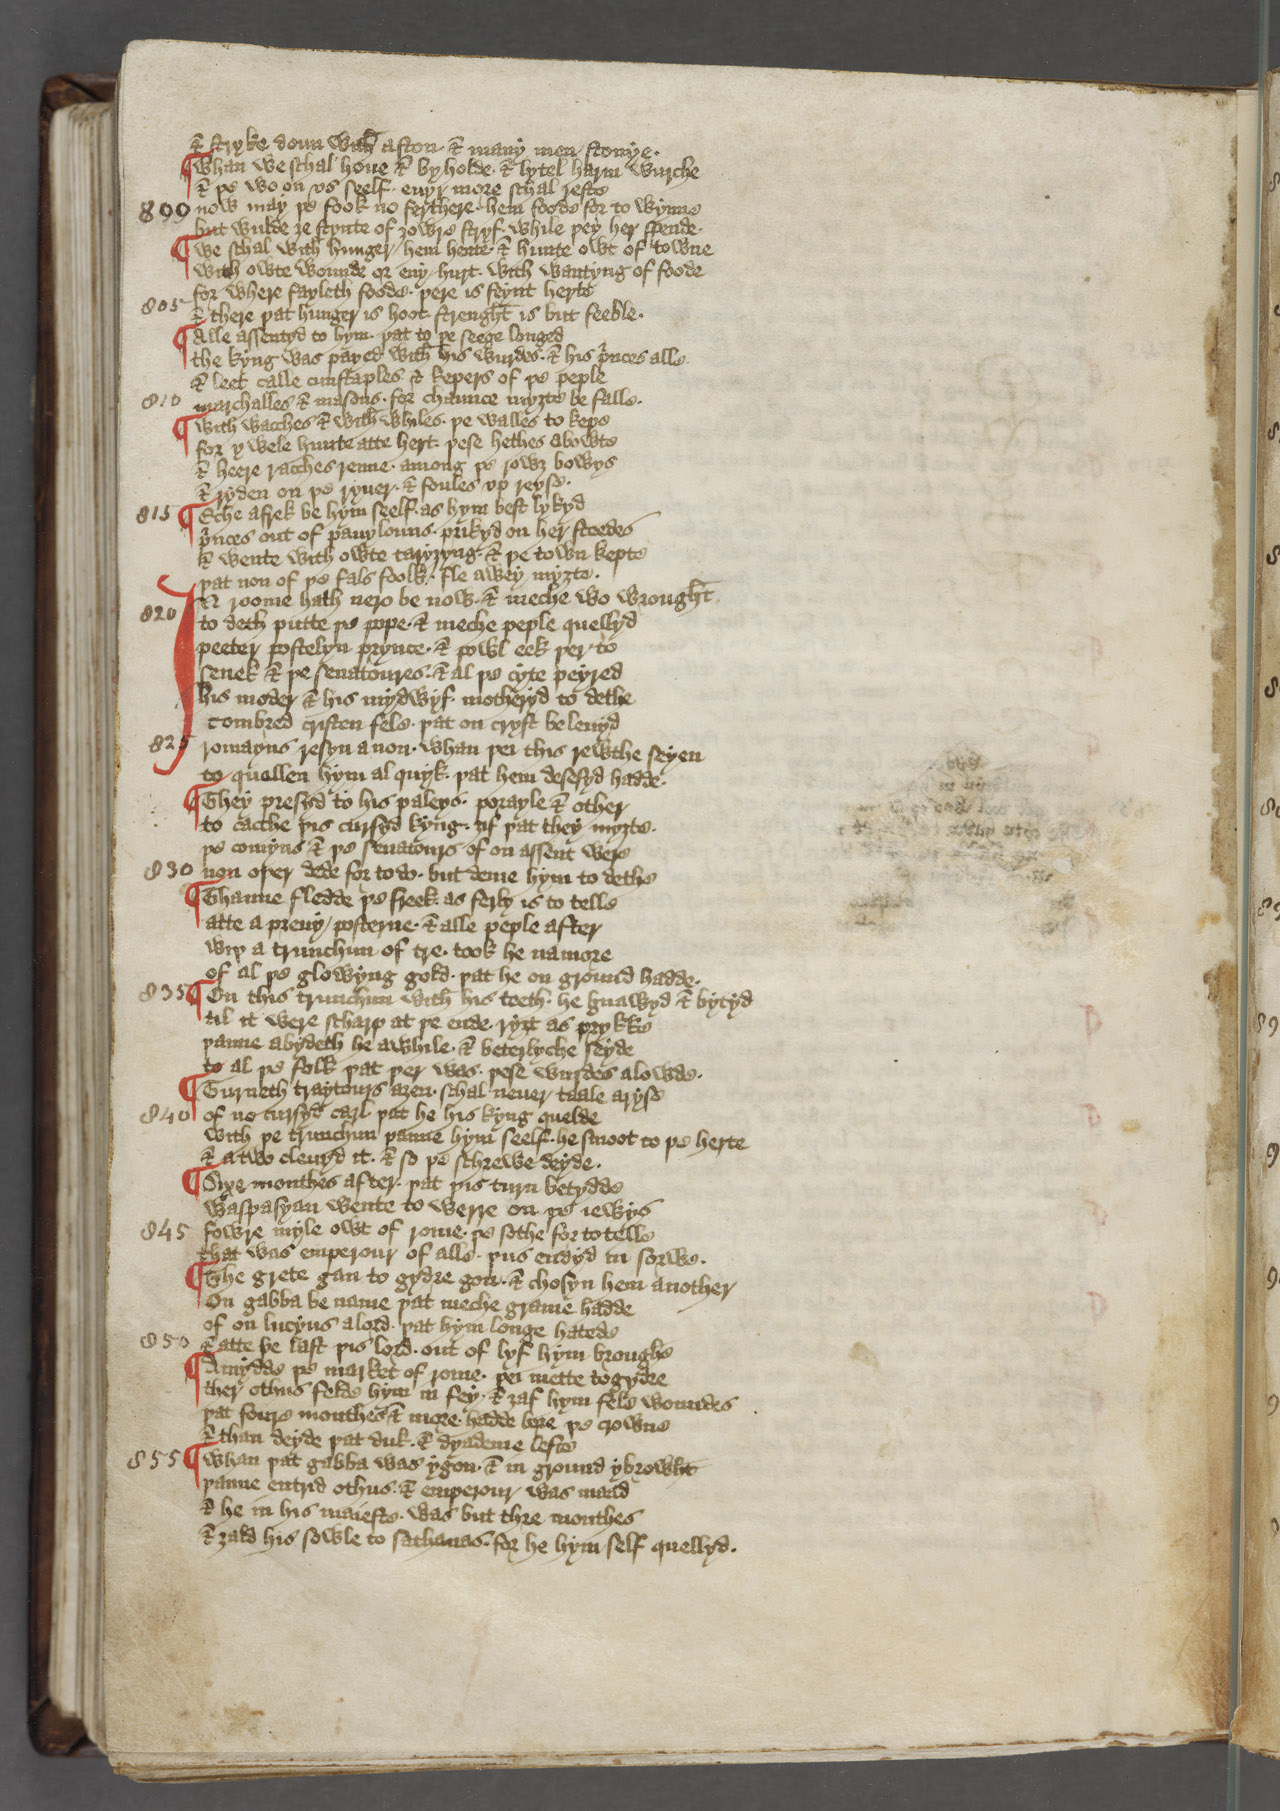 ⁊ stryke doun with a ston · ⁊ many men stonye ·
¶ whan we schal houe ⁊ byholde · ⁊ lytel harm wirche
⁊ þe wo on us seelf · euyr more schal reste
800 now may þe fook no ferthere · hem foode for to wynne
but wulde ȝe stynte of ȝowre stryf · while þey her spende ·
¶ we schal with hunger hem hente · ⁊ hunte owt of towne
with owte wounde or eny hurt · with wantyng of foode
for where fayleth foode · þere is feynt herte
805 ⁊ there þat hunger is hoot · strenght is but feeble ·
¶ Alle assentyd to hym · þat to þe seege longed
the kyng was payed with his wurdes · ⁊ his princes alle ·
⁊ leet calle cunstaples · ⁊ kepers of þe peple
810 marchalles ⁊ masons · for chaunce myȝte be falle ·
¶ with wacches ⁊ with whiles · þe walles to kepe
for y wele hunte atte hert · þese hethes abowte
⁊ heere racches renne · among þe rowȝ bowys
⁊ ryden on þe ryuer · ⁊ foules up reyse ·
815 ¶ Eche a frek be hym seelf · as hym best lykyd
princes out of pauylouns · prikyd on her steedes
⁊ wente with owte taryyng · ⁊ þe town kepte
þat non of þe fals foolk · fle awey myȝte ·
820 IN roome hath nero be now · ⁊ meche wo wrought
to deth putte þe pope · ⁊ meche peple quellyd
peeter postelyn prynce · ⁊ powl eek þer to
senek ⁊ þe senatoures · ⁊ al þe cyte peyred
his moder ⁊ his mydwyf · motheryd to dethe
combred cristen fele · þat on cryst beleuyd
825 romayns resyn anon · whan þei this rewthe seyen
to quellen hym al quyk · þat hem desesyd hadde ·
¶ They presyd to his paleys · porayle ⁊ other
to cacche þis cursyd kyng · ȝif þat they myȝte ·
þe comyns ⁊ þe senatours of on assent were
830 non oþer dede for to do · but deme hym to dethe
¶ Thanne fledde þe freek · as ferly is to telle
atte a preuy posterne · ⁊ alle peple after
wiþ a trunchun of tre · took he namore
of al þe glowyng gold · þat he on ground hadde ·
835 ¶ On this trunchun with his teeth · he gnawyd ⁊ bytyd
til it were scharp at þe ende · ryȝt as prykke
þanne abydeth he awhile · ⁊ beterlyche seyde
to al þe folk þat þer was · þese wurdes alowde ·
¶ Turneth traytours aȝen · schal neuer taale aryse
840 of no cursyd carl þat he his kyng quelde
with þe trunchun þanne hym seelf · he smoot to þe herte
⁊ a two cleuyd it · ⁊ so þe schrewe deyde ·
¶ Sixe monthes after · þat þis turn betydde
waspasyan wente to werre on þe iewys
845 fowre myle owt of rome · þe sothe for to telle
that was emperour of alle · þus endyd in sorwe ·
¶ The grete gan to gydre gon · ⁊ chosyn hem another
On gabba be name þat meche grame hadde
of on lucyus a lord · þat hym longe hatede
850 ⁊ atte þe last þis lord · out of lyf hym broughte
¶ Amydde þe market of rome · þei mette togydre
ther othus felde hym in fey · ⁊ ȝaf hym fele woundes
þat foure monthes ⁊ more · hadde bore þe crowne
⁊ than deyde þat duk · ⁊ dyademe lefte
855 ¶ whan þat gabba was ygon · ⁊ in ground ybrowht
þanne entrid othus · ⁊ emperour was maad
⁊ he in his maieste · was but thre monthes
⁊ ȝald his sowle to sathanas · for he hym self quellyd ·